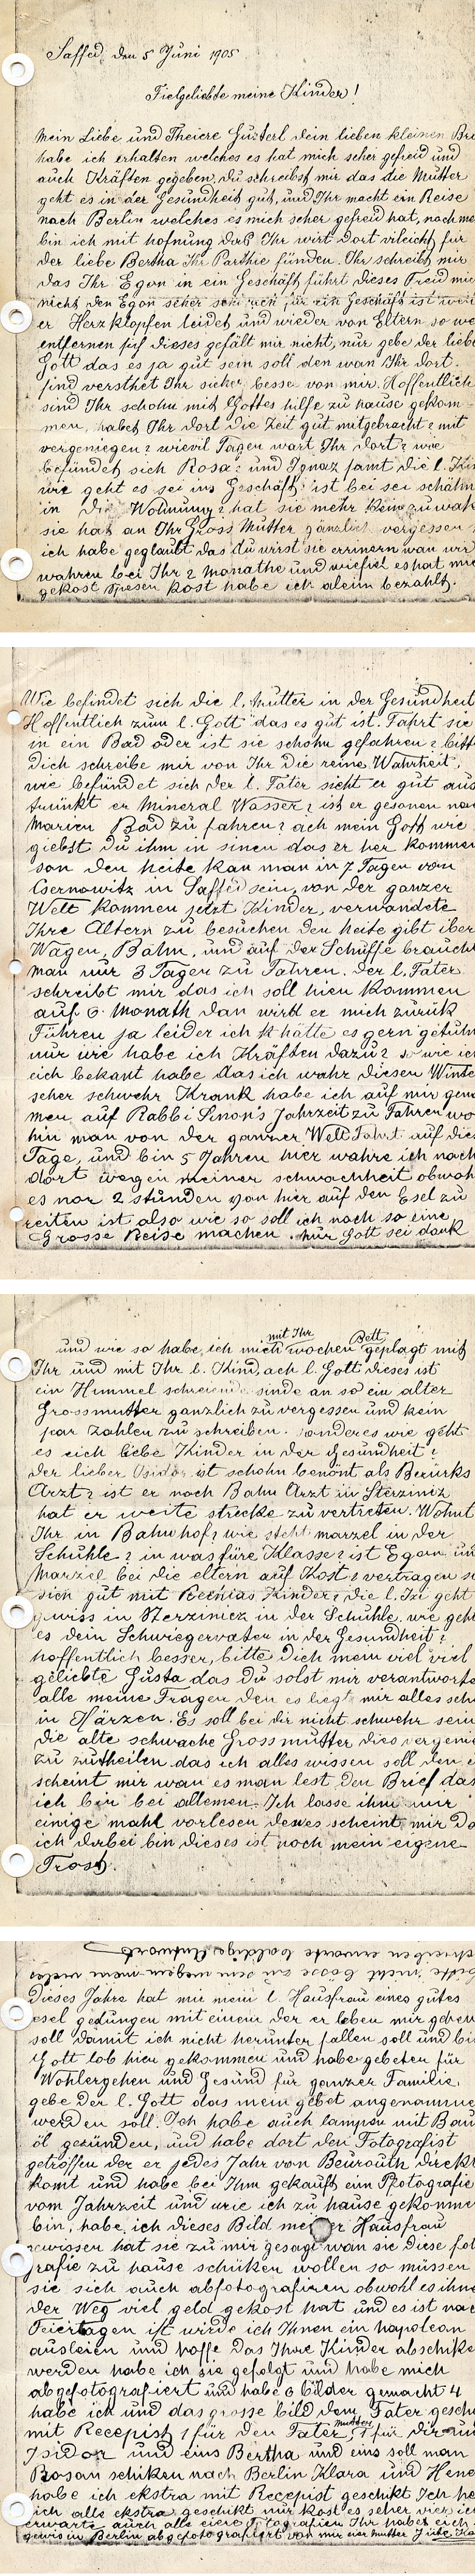 Saffed, den 5 Juni 1905
Vielgeliebte meine Kinder!
Mein Liebe und Theiere Gusterl dein lieben kleinen Bri
habe ich erhalten welches es hat mich seher gefreid und
auch Kräften gegeben, du schreibst mir das die Mutter
geht es in der Gesundheit gut, und Ihr macht ein Reise
nach Berlin welches es mich seher gefreid hat, nach me
bin ich mit hofnung das Ihr wirt dort vileicht für
der liebe Bertha Ihr Parthie fünden. Ihr schreibt mir
das Ihr Egon in ein Geschäft führt dieses Freid mic
nicht den Egon seher für ein Geschäft ist weil
er Herz klopfen leidet und wieder von Eltern so we
entfernen sich dieses gefält mir nicht, nur gebe der liebe
Gott das es ja gut sein soll den wan Ihr dort
sind versthet Ihr sicher besse von mir. Hoffentlich
sind Ihr schohn mit Gottes hilfe zu hause gekom-
men, habet Ihr dort die Zeit gut mitgebracht? mit
vergeniegen? wievil Tagen wart Ihr dort? wie
befündet sich Rosa? und Ignaz samt die l. Kin
wie geht es sei ins Geschäft ist bei sei schöhn
in die Wohnung? hat sie mehr kein zu wat
sie hat an Ihr Gross Mutter gänzlich vergessen
ich habe geglaubt das du wirst sie errinern wan wir
wahren bei Ihr 2 Monathe und wiefiel es hat mic
gekost Speisen Kost habe ich alein bezahlt.
Wie befindet sich die l. Mutter in der Gesundheit
Hoffentlich zum l. Gott das es gut ist. Fahrt sie
in ein Bad oder ist sie schohn gefahren? bitt
Dich schreibe mir von Ihr die reine Wahrheit,
wie befündet sich der l. Vater sieht er gut aus
trünkt er Mineral Wasser? ist er gesonen nach
Marien Bad zu fahren? ach mein Gott wie
giebst du ihm in sinen das er her kommen
son den heite kan man in 7 Tagen von
Csernowitz in Saffed sein, von der ganzer
Welt kommen jetzt Kinder, verwandete
Ihre Altern zu besuchen den heite gibt iber
Wägen, Bahn, und auf der Schüffe braucht
man nur 3 Tagen zu Fahren. der l. Vater
schreibt mir das ich soll hien kommen
auf 6 Monath dan wird er mich zurük
Führen ja leider ich hätte es gern getuhn
nur wie habe ich Kräften dazu? so wie ich
eich bekant habe das ich wahr diesen Winte
seher schwehr Krank habe ich auf mir gen
men auf Rabbi Simon's Jahrzeit zu Fahren wo
hin man von der ganzer Welt Fahrt auf dies
Tage, und bin 5 Jahren hier wahre ich nach
dort wegen meiner schwachheit obwoh
es nor 2 stünden von hier auf den Esel zu
reiten ist also wie so soll ich noch so eine
Grosse Reise machen. Nur Gott sei dank
mit Ihr Bett
und wie so habe ich mich wochen geplagt mit
Ihr und mit Ihr l. Kind, ach l. Gott dieses ist
ein Himmel schreiende sinde an so ein alter
Grossmutter ganzlich zu vergessen und kein
par Zahlen zu schreiben. sonderes wie geht
es eich liebe Kinder in der Gesundheit?
der lieber Isidor ist schohn benönt als Bezürks
Arzt? ist er noch Bahn Arzt in Sterziniz
hat er weite strecke zu vertreten. Wohnt
Ihr in Bahnhof? wie steht marzel in der
Schuhle? in was füre Klasse? ist Egon un
Marzel bei die eltern auf Kost? vertragen s
sich gut mit Kinder? die l. geht
gewiss in Sterziniz in der Schuhle, wie geht
es dein Schwiegervater in der Gesundheit?
hoffentlich besser, bitte Dich mein viel viel
geliebte Gusta das Du solst mir verantworte
alle meine Fragen den es liegt mir alles sehr
in Härzen. Es soll bei dir nicht schwehr sein
die alte schwache Grossmutter dies vergenie
zu zutheilen das ich alles wissen soll den e
scheint mir wan es man lest den Brief das
ich bin bei allemen. Ich lasse ihm mir
einige mahl vorlesen dewes scheint mir da
ich dabei bin dieses ist noch mein eigene
Trost.
schreiben erwarte baldige Antwort
bitte nicht Bösse zu sein wegen mein vieles
Dieses Jahre hat mir mein l. Hausfrau eines gutes
esel gedungen mit einem der er leben mir gehen
soll damit ich nicht herunter fallen soll und bi
Gott lob hien gekommen und habe gebeten für
Wohlergehen und Gesund für ganzer Familie
gebe der l. Gott das mein gebet angenomme
werden soll. Ich habe auch lampen mit Bau
öl gezünden, und habe dort den Fotografist
getroffen der er jedes Jahr von Beirouth direkt
komt und habe bei Ihm gekauft ein Photografie
vom Jahrzeit und wie ich zu hause gekomme
bin, habe ich dieses Bild meiner Hausfrau
gewissen hat sie zu mir gesagt wan sie diese fot
grafie zu hause schüken wollen so müssen
sie sich auch abfotografiren obwohl es ihne
der Weg viel geld gekost hat und es ist nac
Feiertagen ist würde ich Ihnen ein napoleon
ausleien und hoffe das Ihre Kinder abschike
werden habe ich sie gefolgt und habe mich
abgefotografiert und habe 6 bilder gemacht 4
habe ich und das grosse bild dem Vater gesch
mit Recepist 1 für den Vater Mutter 1 für dir un
Isidor und eins Bertha und eins soll man
Rosan schiken nach Berlin Klara und Hene
habe ich ekstra mit Recepist geschikt Ich he
ich alle ekstra geschikt nur kost es seher viel ich
erwarte auch alle eiere Fotografien Ihr habet eich
gewis in Berlin abgefotografiert von mir eier Mutter